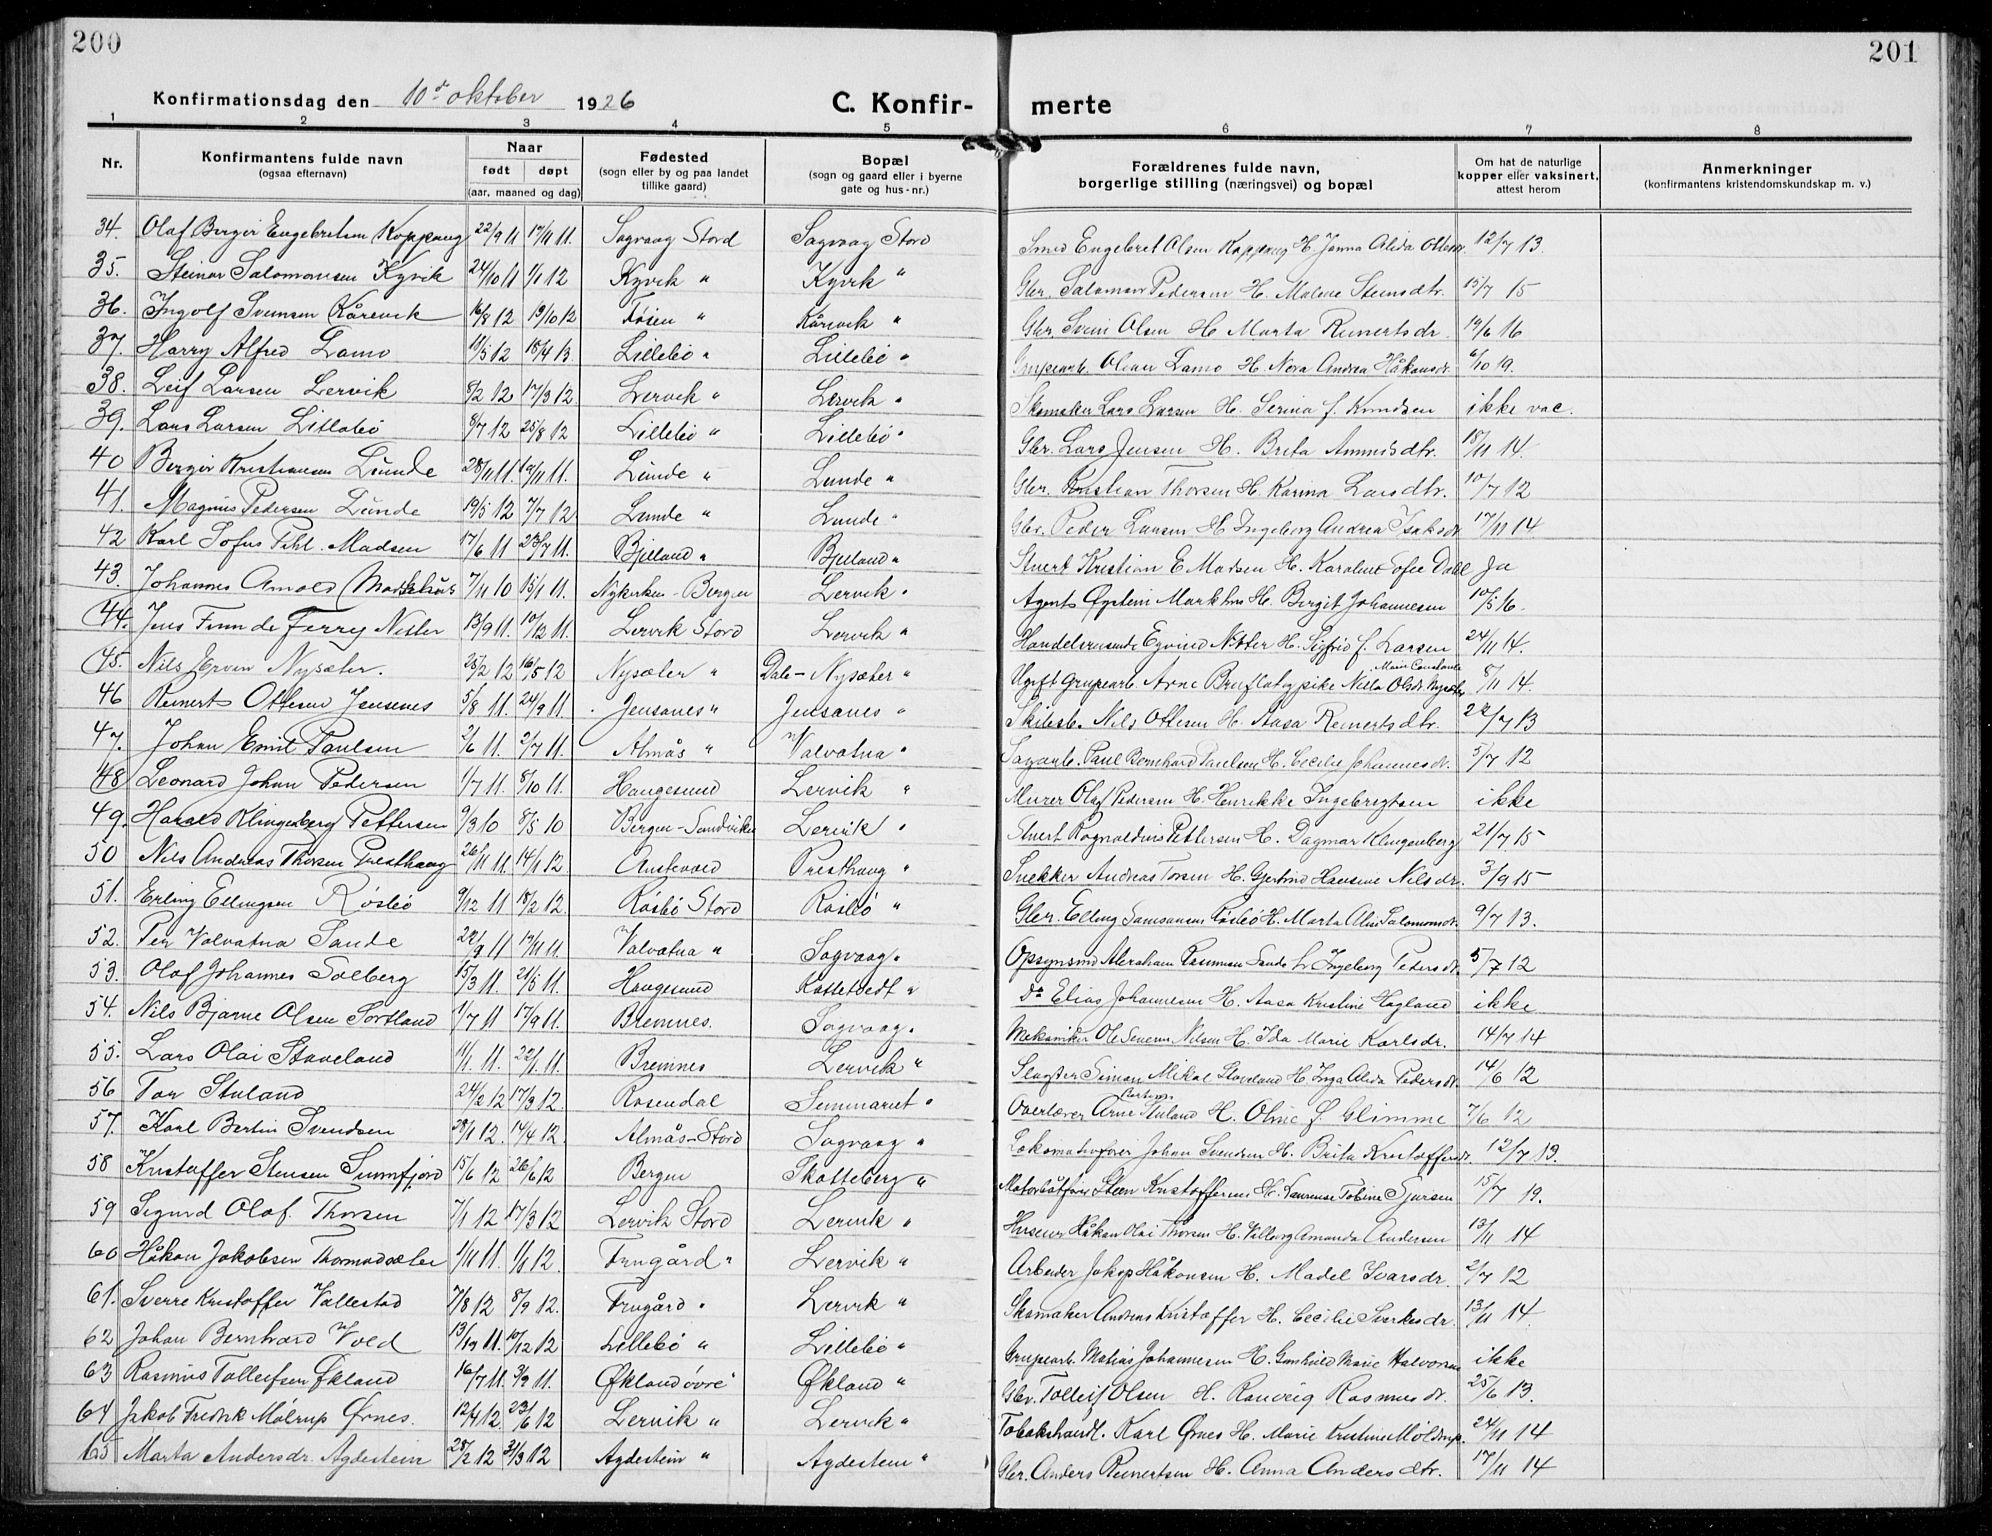 200
201
Konfirmationsdag den 10de oktober 1926
C. Konfir-
merte
1 2 3 4 5 6 7 8
Nr.
Konfirmantens fulde navn
(ogsaa efternavn)
Naar
født døpt
(aar, maaned og dag)
Fødested
(sogn eller by og paa landet
tillike gaard)
Bopæl
(sogn og gaard eller i byerne
gate og hus-nr.)
Forældrenes fulde navn,
borgerlige stilling (næringsvei) og bopæl
Om hat de naturlige
kopper eller vaksinert,
attest herom
Anmerkninger
(konfirmantens kristendomskundskap m. v.)
34. Olaf Berger Engebretsen Koppang 22/9 11 19/11 11. Sagvaag Stord Sagvaag Stord Smed Engebret Olsen Koppang H. Janna Alida 12/7 13.
35. Steinar Salomonsen Kyvik 24/10 11 1/1 12 Kyvik " Kyvik " Gbr. Salomon Pedersen H. Malene Steinsdtr. 15/7 15
36. Ingolf Svensen Kårevik 16/8 12 19/10 12 Føsen " Kårevik " Gbr. Svein Olsen H. Marta Reinertsdr. 19/6 16
37. Harry Alfred Lamo 10/5 12 18/4 13. Lillebø " Lillebø " Grupearb. Oliver Lamo H. Nora Andrea Håkonsdr. 6/10 19.
38. Leif Larsen Lervik 8/2 12 17/3 12. Lervik " Lervik " Skomaker Lars Larsen H. Serina f. Knudsen ikke vac.
39. Lars Larsen Litlabø 8/7 12 25/8 12 Lillebø " Lillebø " Gbr. Lars Jensen H. Brita Amundsdtr. 18/11 14.
40 Berger Kristiansen Lunde 28/11 11. 19/11 11. Lunde " Lunde " Gbr. Kristian Thorsen H. Karina Larsdtr. 10/7 12
41. Magnus Pedersen Lunde 19/5 12 7/7 12 Lunde " Lunde " Gbr. Peder Larsen H. Ingeborg Andrea Isaksdr 17/11 14
42 Karl Sofus Fihl. Madsen 17/6 11 23/7 11. Bjelland " Bjelland " Stuert Kristian E Madsen H. Karoline Sofie Dahl Ja
43. Johannes Arnold Markhus 7/11 10 15/1 11. Nykirken - Bergen Lervik " Agent Øystein Markhus H. Bergit Johannesen 10/5 16.
44. Jens Finn de Ferry Nitter 13/9 11. 10/12 11. Lervik Stord Lervik " Eyvind Nitter H. Sigfrid f. Larsen 24/11 14.
45. Nils Erven Nysæter. 25/2 12 16/5 12 Nysæter " Dale - Nysæter " Ugift Grupearb. Arne Bruflat og pike Nilla Olsdr Nysæter 8/11 14.
46 Reinert Ottesen Jensenes 5/8 11. 24/9 11. Jensanes " Jensanes " Nils Ottesen H. Aasa Reinertsdtr. 22/7 13
47. Johan Emil Paulsen 2/6 11. 2/7 11. Almås " Valvatna " Sagarb. Paul Bernhard Paulsen H. Cecilie Johannesdr. 5/7 12
48 Leonard Johan Pedersen 1/7 11. 8/10 11. Haugesund Lervik " Murer Olaf Pedersen H. Henrikke Ingebregtsen ikke
49. Harald Klingenberg Pettersen 9/3 10 8/5 10 Bergen-Sandviken Lervik " Stuert Ragnvaldius Pettersen H. Dagmar Klingenberg 21/7 15
50 Nils Andreas Thorsen Presthaug 26/11 11. 14/1 12 Austevold Presthaug " Snekker Andreas Torsen H. Gjertrud Hansine Nilsdr. 3/9 15
51. Erling Ellingsen Røsbø 9/12 11 18/2 12. Røsbø Stord Røsbø " Gbr. Elling Samsonsen Røsbø H. Marta Alis Salomonsdr. 9/7 13.
52. Per Valvatna Sande 22/9 11 19/11 11. Valvatna " Sagvaag " Opsynsmd Abraham Rasmussen Sande H. Ingeborg Pedersdr. 5/7 12
53. Olaf Johannes Solberg 15/3 11. 21/5 11. Haugesund Kattetvedt " Do Elias Johannesen H. Aasa Kristine Hagland ikke
54. Nils Bjarne Olsen Sortland 1/7 11 17/9 11. Bremnes. Sagvaag. Mekaniker Ole Severin Nilsen H. Ida Marie Karlsdr. 14/7 14
55. Lars Olai Staveland 11/1. 11. 22/1. 11. Bremnes Lervik " Slagter Simon Mikal Staveland H. Inga Alida Pedersdr. 14/6 12
56 Tor Stuland 24/2 12 17/3 12. Rosendal Seminariet " Overlærer Arne Stuland H. Oline f. Glimme 7/6 12
57. Karl Bertin Svendsen 28/1 12. 14/4 12. Almås-Stord Sagvaag " Lokomotivfører Johan Svendsen H. Brita Kristoffersdr. 12/7 19.
58 Kristoffer Stensen Sunnfjord 15/6 12 26/6 12 Bergen Skotteberg " Motorbåtfører Steen Kristoffersen H. Laurense Tobine Sjursen 15/7 19.
59 Sigurd Olaf. Thorsen 7/1 12 17/3 12 Lervik Stord Lervik " Håkon Olai Thorsen H. Valborg Amanda Andersen 13/11 14
60 Håkon Jakobsen Thormodsæter 1/11 11. 1/1 12. Frugård " Lervik " Arbeider Jakop Håkonsen H. Madel Ivarsdr. 2/7 12
61. Sverre Kristoffer Vallestad 7/8 12 8/9 12. Frugård " Lervik " Skomaker Andreas Kristoffer H. Cecilie Sverkesdr. 13/11 14.
62 Johan Bernhard Vold 13/12 11. 10/12 12 Lillebø " Lillebø " Grupearb. Matias Johannesen H. Gunhild Marie Halvorsen ikke
63 Rasmus Tolleifsen Økland 16/7 11. 3/9 11. Økland övre Økland " Gbr. Tolleif Olsen H. Ranveig Rasmusdr. 25/6 13.
64 Jakob Fredrik Møltrup Ørnes. 12/4 12. 23/6 12 Lervik " Lervik " Tobakshandl. Karl Ørnes H. Marie Kristine Møltrup. 24/11 14
65 Marta Andersdr. Agdestein 28/2 12 31/3 12 Agdestein " Agdestein " Gbr. Anders Reinertsen H. Anna Andersdtr. 17/11 14